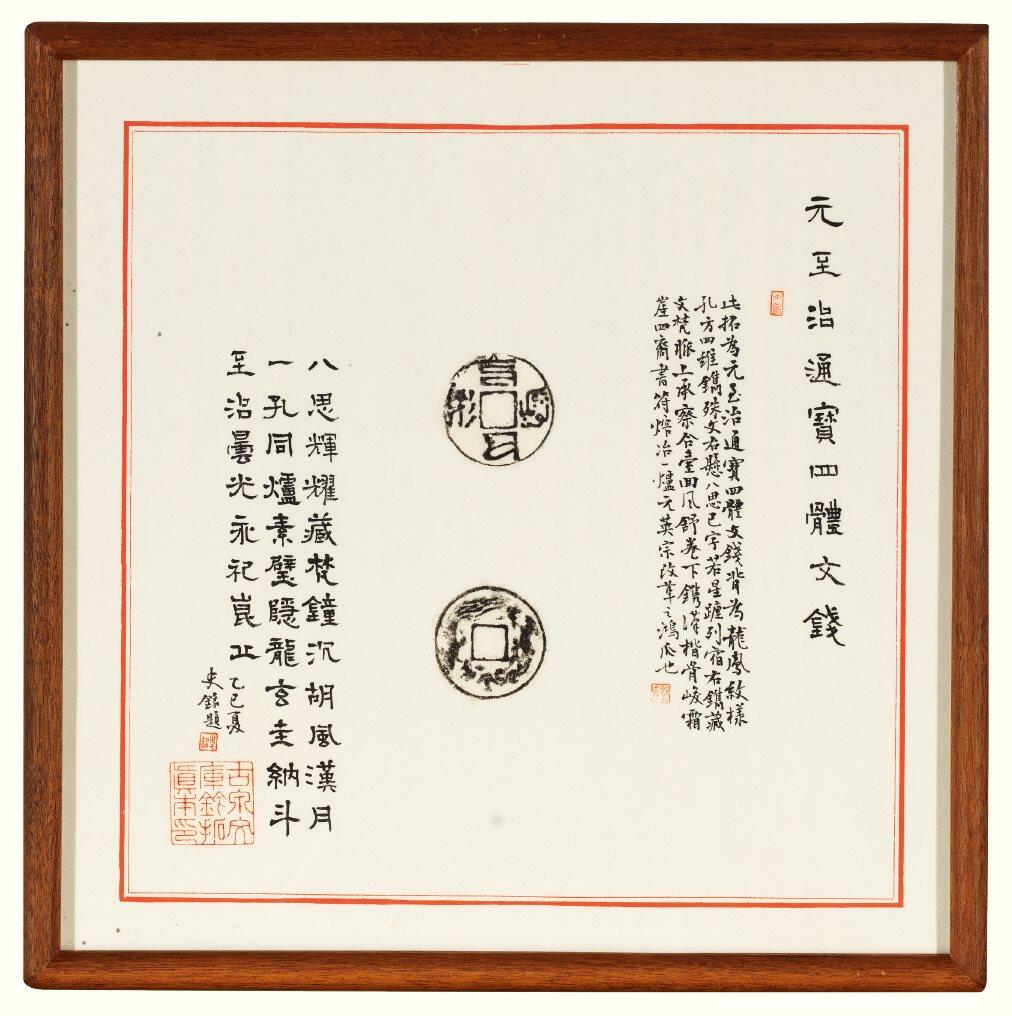 元至治通寶四體文錢
此拓為元至治通寶四體文錢背為龍鳳紋樣
孔方四維鐫殊文右懸八思巴字若星躔列宿右鐫藏
文梵脈上承察合臺回風舒卷下鐫漢楷骨峻霜
崖四裔書符熔冶一爐元英宗改革之鴻爪也
八思輝耀藏梵鐘沉胡風漢月
一孔同爐素璧隱龍玄圭納斗
至治曇光永祀崑
乙巳夏
史銘題